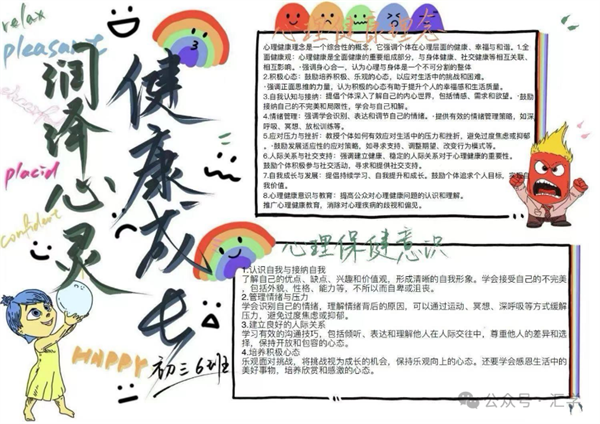 relax
pleasant
placid
confident
HAPPY
润泽心灵
健康成长
初三6班
心理健康理念
心理健康理念是一个综合性的概念，它强调个体在心理层面的健康、幸福与和谐。1.全
面健康观：心理健康是全面健康的重要组成部分，与身体健康、社交健康等相互关联、
相互影响。·强调身心合一，认为心理与身体是一个不可分割的整体
2.积极心态：鼓励培养积极、乐观的心态，以应对生活中的挑战和困难。
·强调正面思维的力量，认为积极的心态有助于提升个人的幸福感和生活质量。
3.自我认知与接纳：提倡个体深入了解自己的内心世界，包括情感、需求和欲望。·鼓励
接纳自己的不完美和局限性，学会与自己和解。
4.情绪管理：强调学会识别、表达和调节自己的情绪。·提供有效的情绪管理策略，如深
呼吸、冥想、放松训练等。
5.应对压力与挫折：教授个体如何有效应对生活中的压力和挫折，避免过度焦虑或抑郁
。·鼓励发展适应性的应对策略，如寻求支持、调整期望、改变行为模式等。
6.人际关系与社交支持：强调建立健康、稳定的人际关系对于心理健康的重要性。
鼓励个体积极参与社交活动，寻求和提供社交支持。
7.自我成长与发展：提倡持续学习、自我提升和成长。鼓励个体追求个人目标，实现自
我价值。
8.心理健康意识与教育：提高公众对心理健康问题的认识和理解。
推广心理健康教育，消除对心理疾病的歧视和偏见。
心理保健意识
1.认识自我与接纳自我
了解自己的优点、缺点、兴趣和价值观，形成清晰的自我形象。学会接受自己的不完美
，包括外貌、性格、能力等，不所以而自卑或沮丧。
2.管理情绪与压力
学会识别自己的情绪，理解情绪背后的原因，可以通过运动、冥想、深呼吸等方式缓解
压力，避免过度焦虑或抑郁。
3.建立良好的人际关系
学习有效的沟通技巧，包括倾听、表达和理解他人在人际交往中，尊重他人的差异和选
择，保持开放和包容的心态。
4.培养积极心态
乐观面对挑战，将挑战视为成长的机会，保持乐观向上的心态。还要学会感恩生活中的
美好事物，培养欣赏和感激的心态。
公众号·汇子